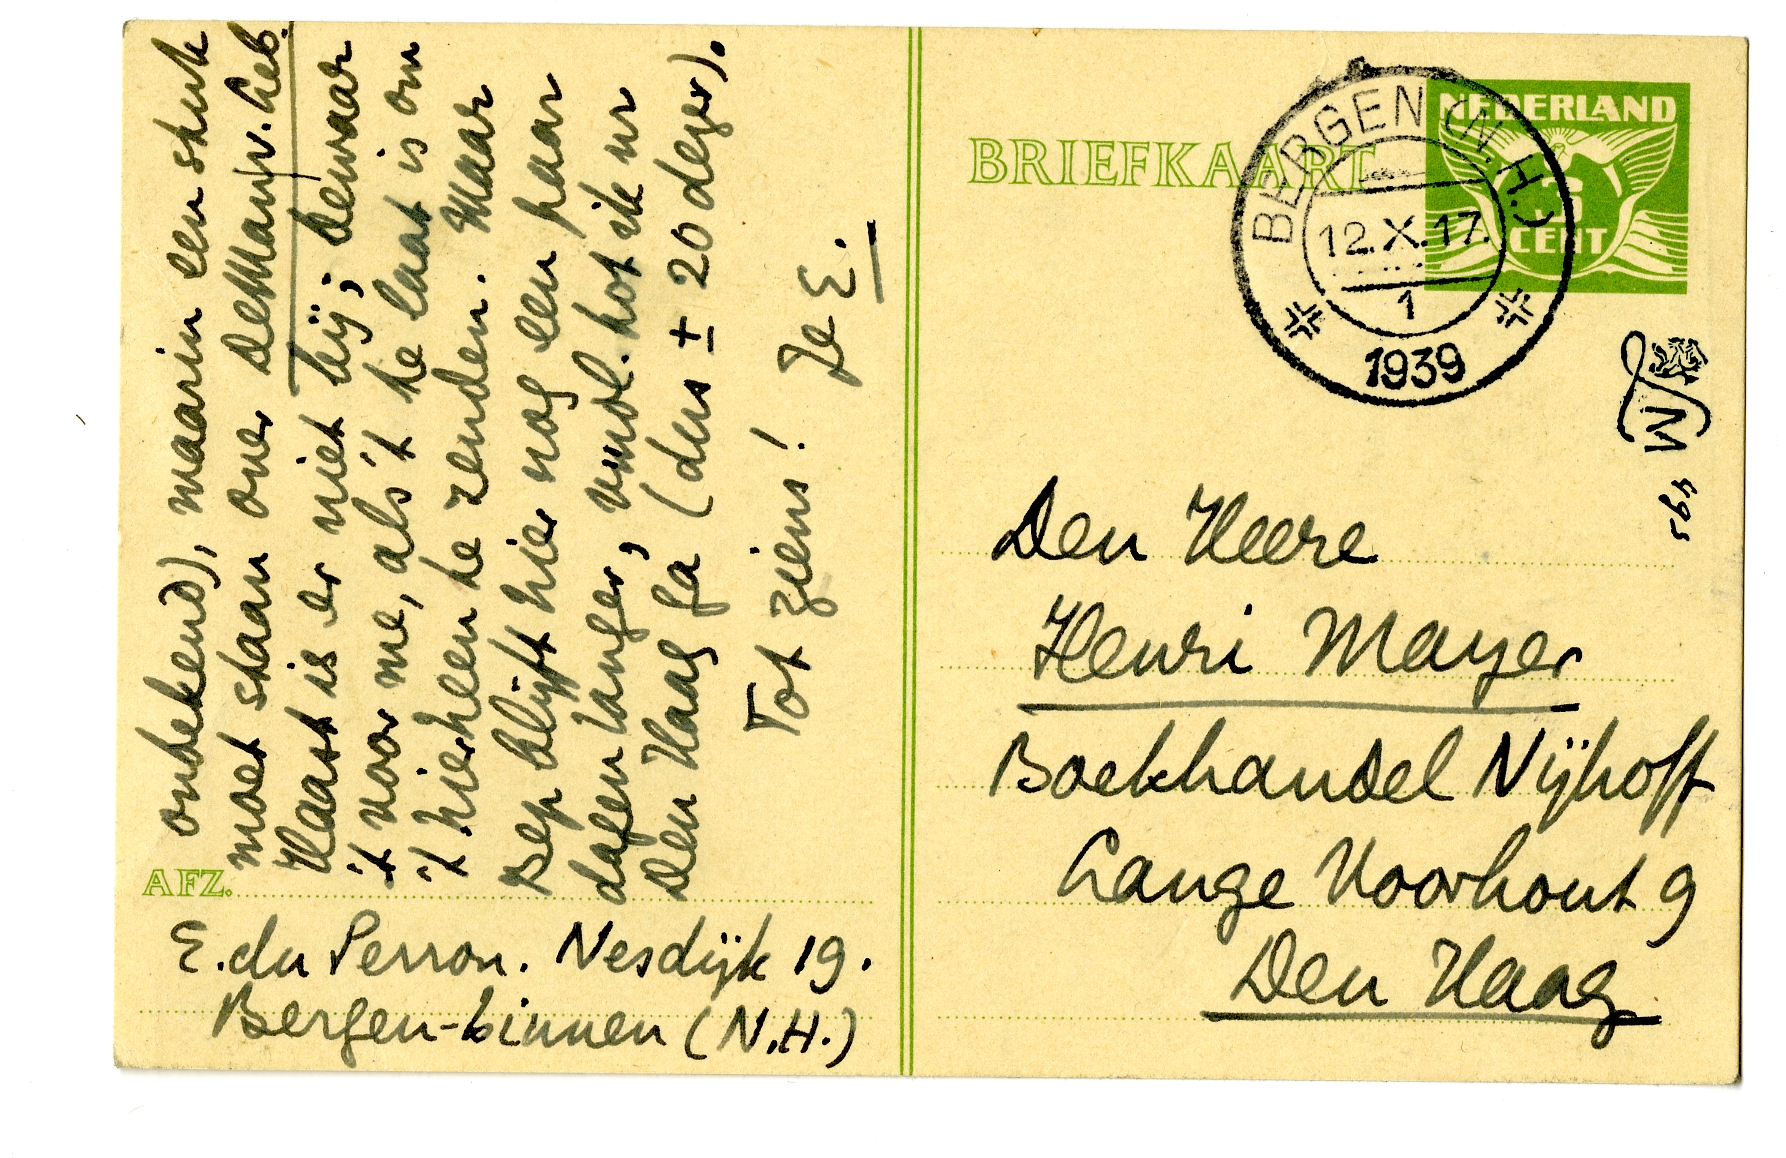 onbekend), waarin een stuk
moet staan over de Man v. Leb.
Haast is er niet bij; bewaar
't voor me, als 't te laat is om
't hierheen te zenden. Maar
Bep blijft hier nog een paar
dagen langer, vóórdat ik nr
Den Haag ga (dus ± 20 dezer).
Tot ziens! Je E.
AFZ.
E. du Perron. Nesdijk 19.
Bergen-binnen (N.H.)
BRIEFKAART
NEDERLAND
3
CENT
BERGEN (N.H.)
12.X.17.
1
1939
M
495
Den Heere
Henri Mayer
Boekhandel Nijhoff
Lange Voorhout 9
Den Haag